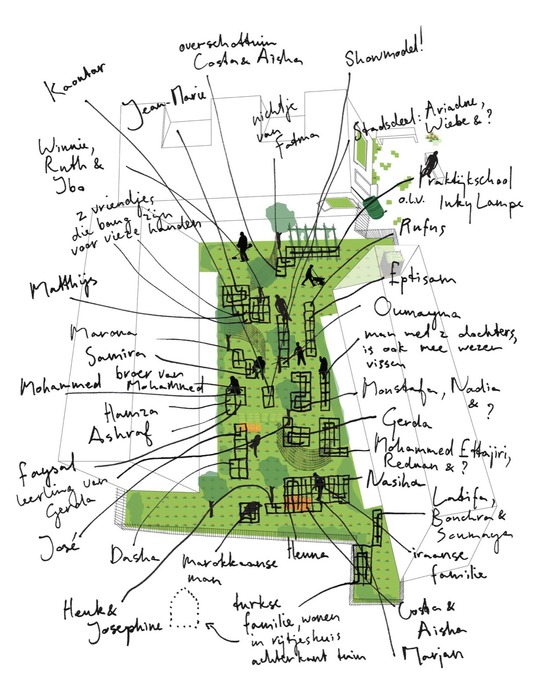 overschottuin
Costa & Aisha
Showmodel!
Kaoutar
Jean-Marie
nichtje
van
Fatma
Stadsdeel: Ariadne,
Wiebe & ?
Winnie,
Ruth &
Ibo
Praktijkschool
o.l.v. Inky Lampe
2 vriendjes
die bang zijn
voor vieze handen
Rufus
Matthijs
Eptisam
Oumayma
Marona
man met 2 dochters,
is ook mee wezen
vissen
Samira
broer van
Mohammed Mohammed
Moustafa, Nadia
& ?
Hamza
Ashraf
Gerda
Mohammed Ettajiri,
Redman & ?
Faysal
leerling van
Gerda
Nasiha
Latifa,
Bouchra &
Soumaya
José
Dasha
Marokkaanse
man
Henna
iraanse
familie
Henk &
Josephine
turkse
familie, wonen
in rijtjeshuis
achterkant tuin
Costa &
Aisha
Marjan